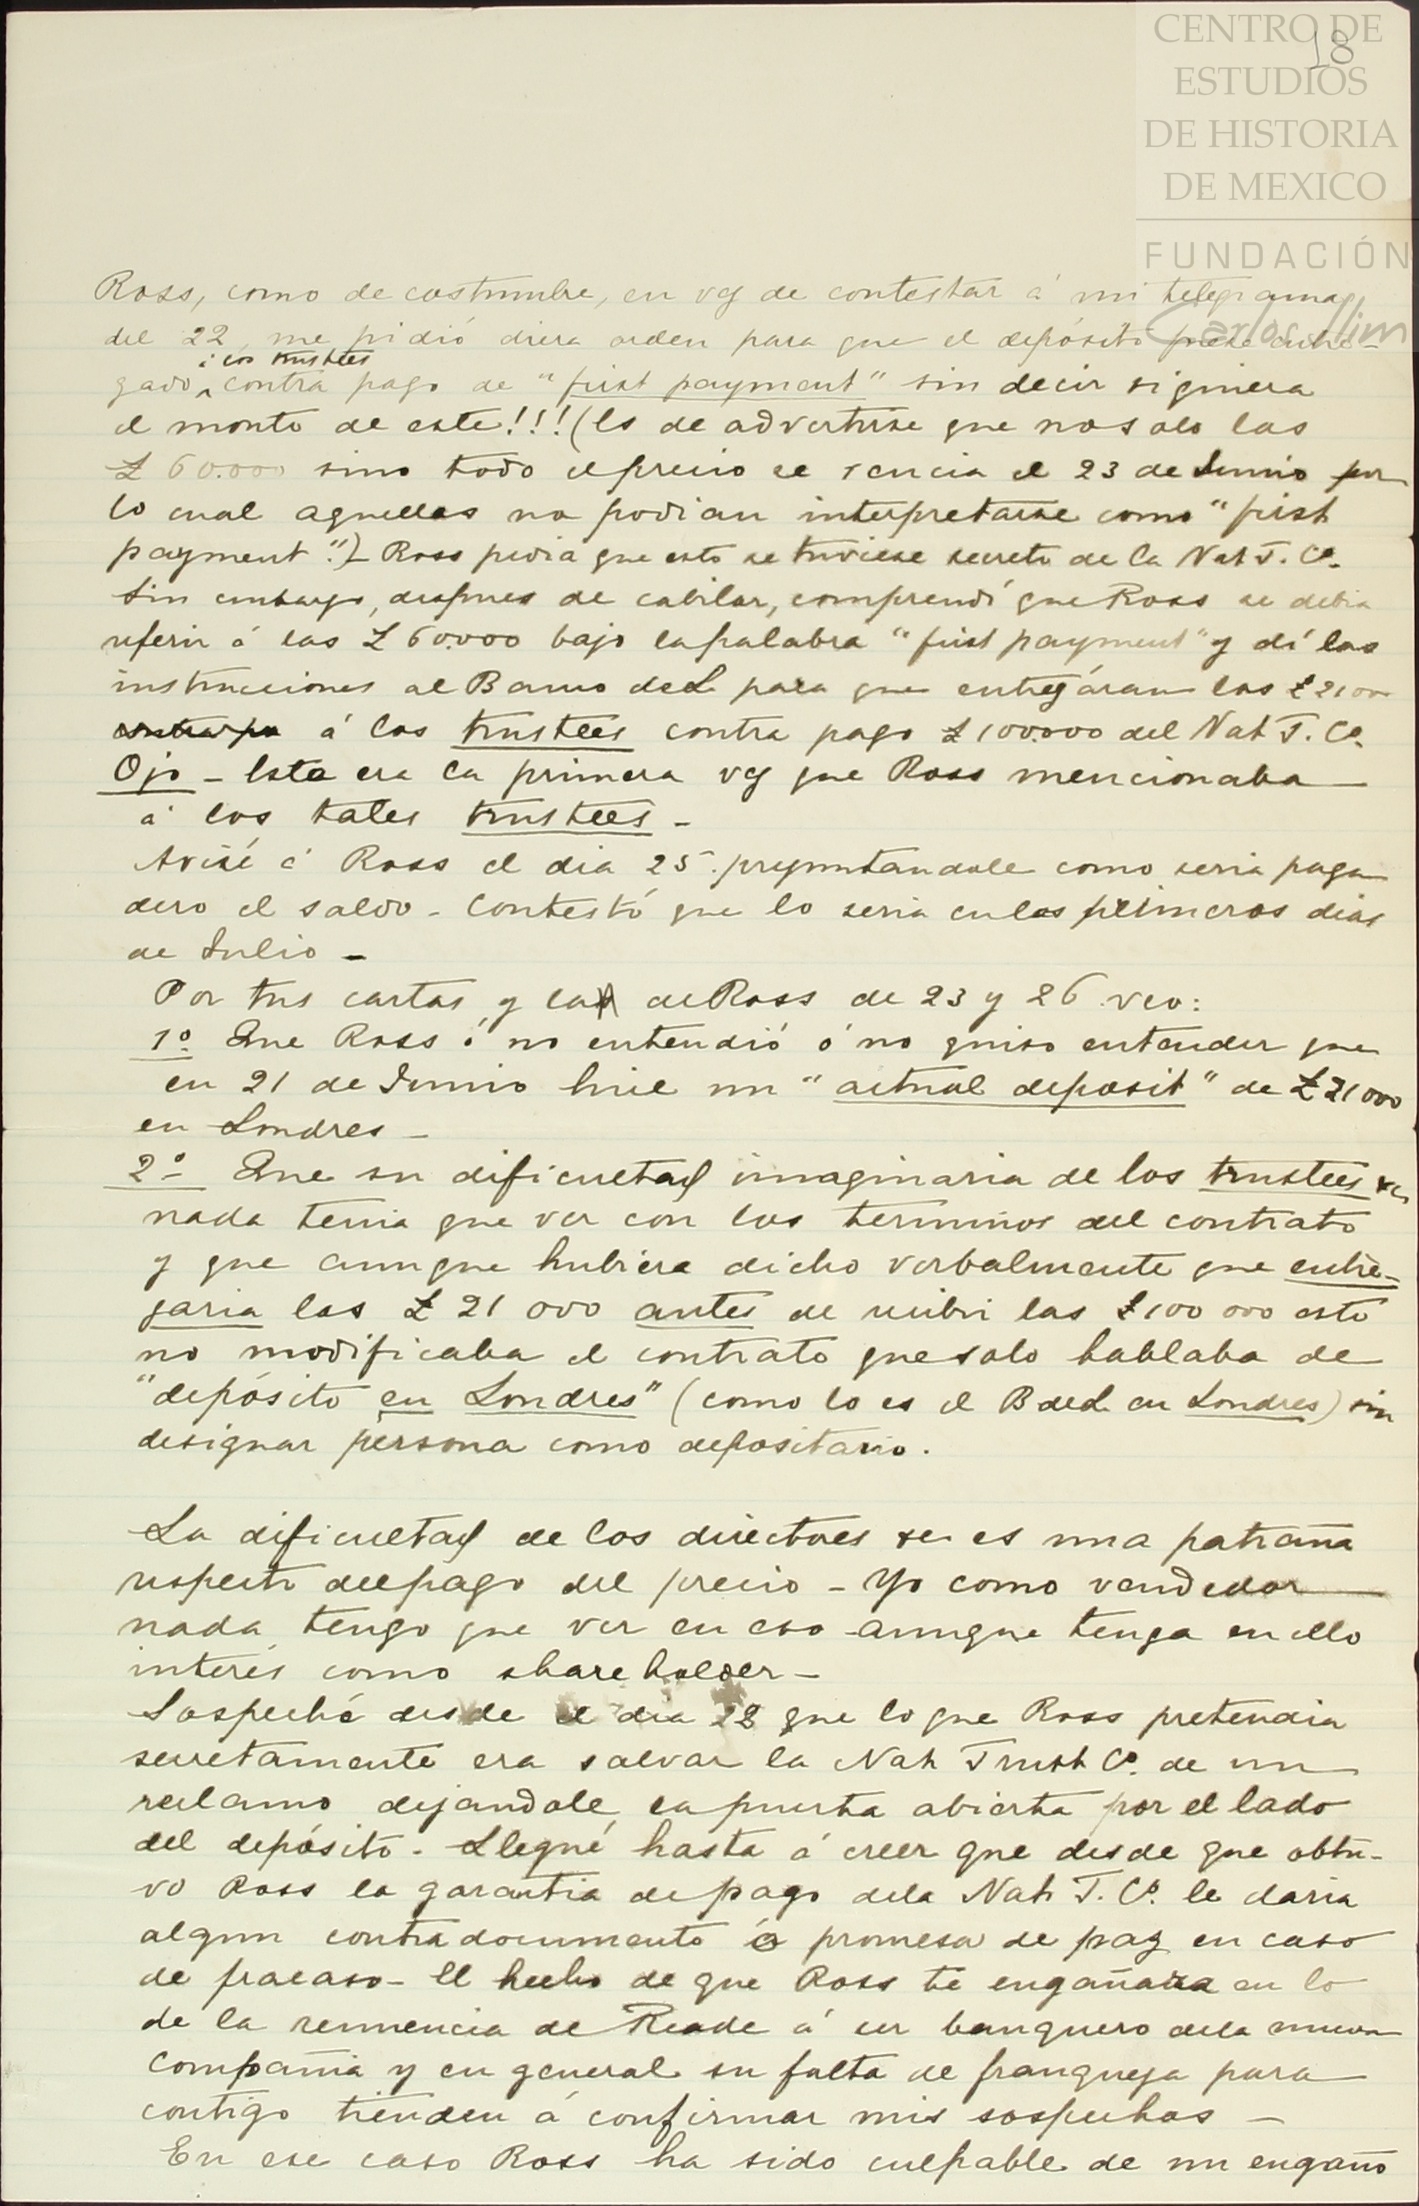 CENTRO DE
ESTUDIOS
DE HISTORIA
DE MEXICO
FUNDACIÓN
Carlos Slim
18
Ross, como de costumbre, en vez de contestar á mi telegrama
del 22, me pidió diera orden para que el depósito fuese entre-
á los trustees
gado contra pago de "first payment" sin decir siquiera
el monto de este!!! (Es de advertirse que no solo las
£ 60.000 sino todo el precio se vencia el 23 de Junio por
lo cual aquellas no podian interpretarse como "first
payment".) – Ross pedia que esto se tuviese secreto de la Nat T. Co.
Sin embargo, despues de cabilar, comprendí que Ross se debia
referir á las £ 60.000 bajo la palabra "first payment" y dí las
instrucciones al Banco de L para que entregáran las £ 21000
á los trustees contra pago £ 100.000 del Nat T. Co.
Ojo – Esta era la primera vez que Ross mencionaba
á los tales trustees –
Avisé á Ross el dia 25. preguntandole como seria paga
dero el saldo – Contestó que lo seria en los primeros dias
de Julio –
Por tus cartas y las de Ross de 23 y 26 veo:
1º Que Ross ó no entendió ó no quiso entender que
en 21 de Junio hice un "actual deposit" de £ 21000
en Londres –
2º Que su dificultad imaginaria de los trustees
nada tenia que ver con los terminos del contrato
y que aunque hubiera dicho verbalmente que entre-
garia las £ 21 000 antes de recibir las £ 100 000 esto
no modificaba el contrato que solo hablaba de
"depósito en Londres" (como lo es el B de L en Londres) sin
designar persona como depositario.
La dificultad de los directores es una patraña
respecto del pago del precio – Yo como vendedor
nada tengo que ver en eso aunque tenga en ello
interés como shareholder –
Sospeché desde el dia 28 que lo que Ross pretendia
secretamente era salvar la Nat Trust Co. de un
reclamo dejandole la puerta abierta por el lado
del depósito. Llegué hasta á creer que desde que obtu-
vo Ross la garantia de pago de la Nat T. Co. le daria
algun contradocumento ó promesa de paz en caso
de fracaso – El hecho de que Ross te engañara en lo
de la renuencia de Reade á ser banquero de la nueva
compañia y en general su falta de franqueza para
contigo tienden á confirmar mis sospechas –
En ese caso Ross ha sido culpable de un engaño